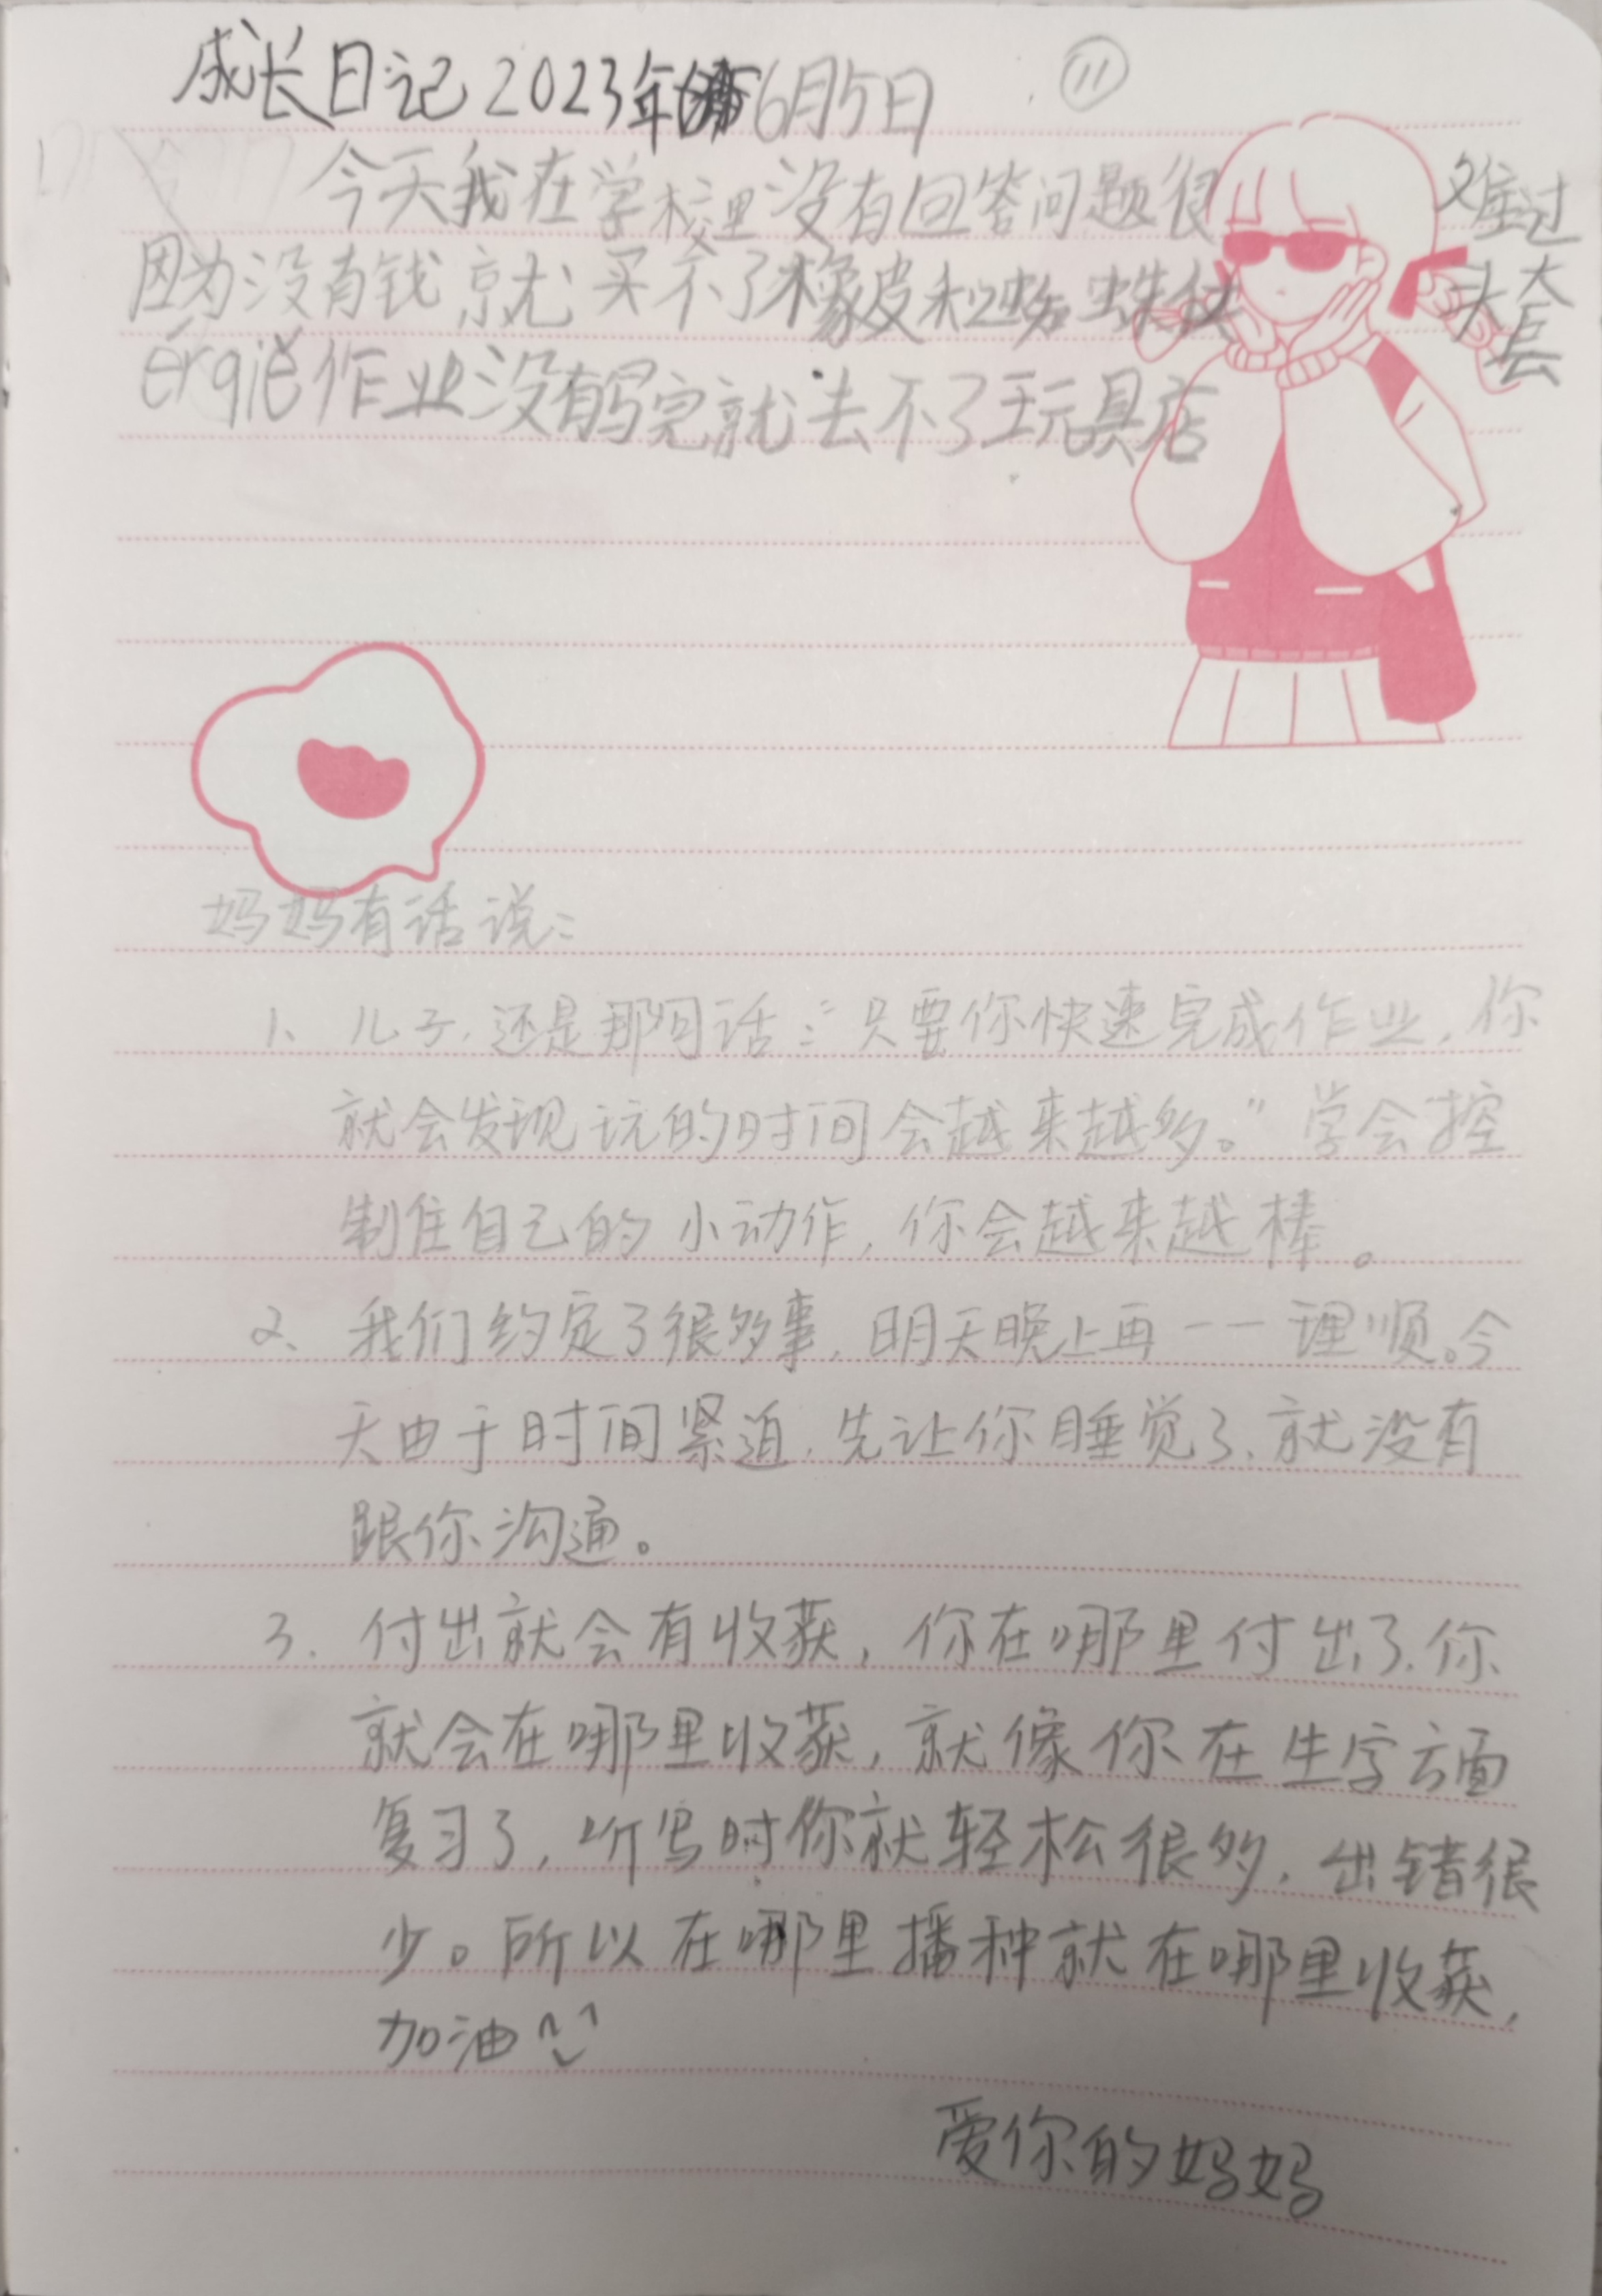 成长日记2023年6月5日 ⑪
今天我在学校里没有回答问题很难过
因为没有钱就买不了橡皮和蜘蛛侠头套
érqiě作业没有写完就去不了玩具店
妈妈有话说:
1、儿子,还是那句话:“只要你快速完成作业,你
就会发现玩的时间会越来越多。”学会控
制住自己的小动作,你会越来越棒。
2、我们约定了很多事,明天晚上再一一理顺。今
天由于时间紧迫,先让你睡觉了,就没有
跟你沟通。
3.付出就会有收获,你在哪里付出了,你
就会在哪里收获,就像你在生字方面
复习了,听写时你就轻松很多,出错很
少。所以在哪里播种就在哪里收获,
加油
爱你的妈妈